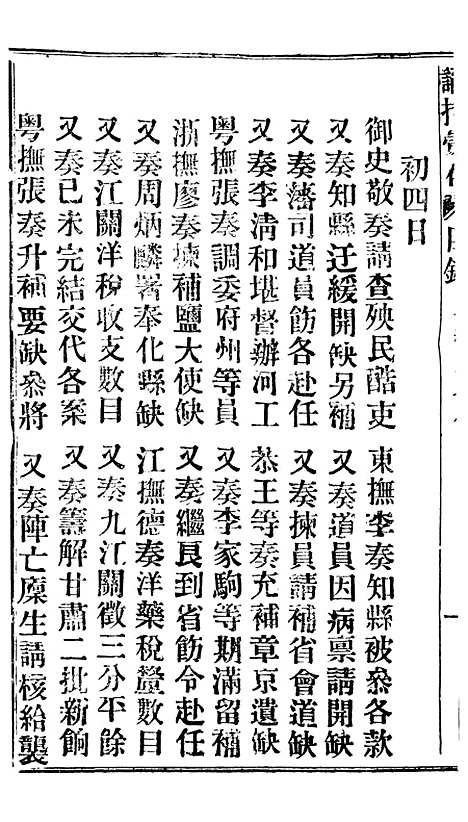 初四日
御史敬奏請查殃民酷吏　東撫李奏知縣被叅各款
又奏知縣迂緩開缺另補　又奏道員因病禀請開缺
又奏藩司道員飭各赴任　又奏揀員請補省會道缺
又奏李清和堪督辦河工　恭王等奏充補章京遺缺
粤撫張奏調委府州等員　又奏李家駒等期滿留補
浙撫廖奏揀補鹽大使缺　又奏繼良到省飭令赴任
又奏周炳麟署奉化縣缺　江撫德奏洋藥稅釐數目
又奏江關洋稅收支數目　又奏九江關徵三分平餘
又奏已未完結交代各案　又奏籌解甘肅二批新餉
粤撫張奏升補要缺叅將　又奏陣亡廩生請核給襲